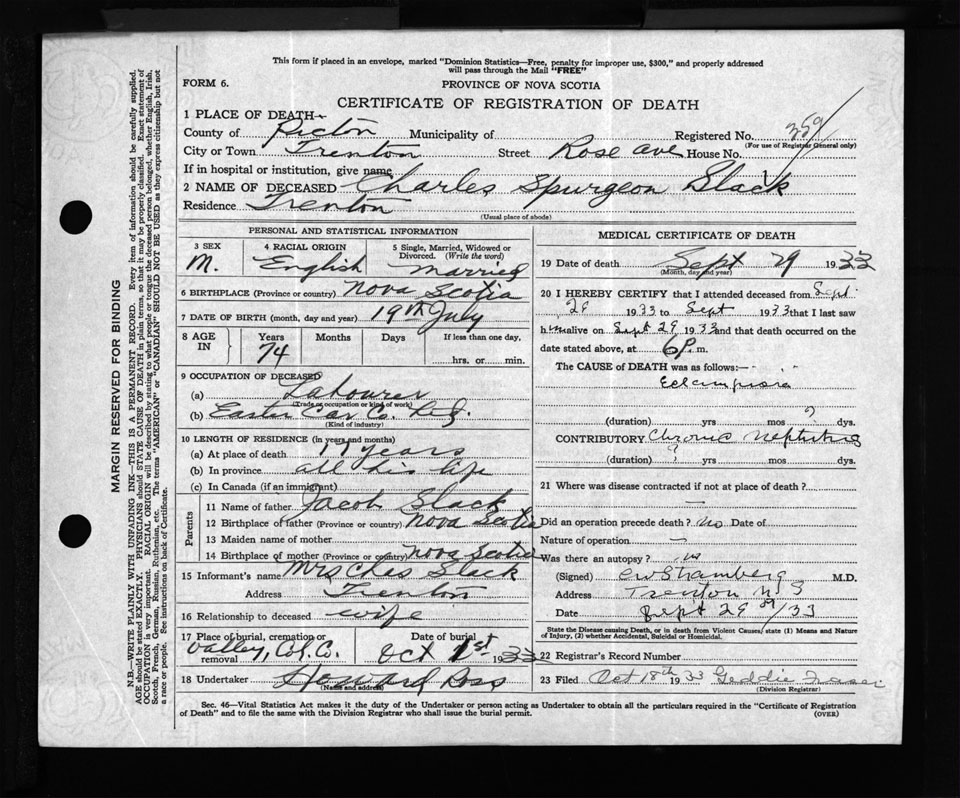 This form if placed in an envelope, marked "Dominion Statistics—Free, penalty for improper use, $300," and properly addressed
will pass through the Mail "FREE"
FORM 6.
PROVINCE OF NOVA SCOTIA
CERTIFICATE OF REGISTRATION OF DEATH
1 PLACE OF DEATH—
County of Pictou Municipality of Registered No. 359
(For use of Registrar General only)
City or Town Trenton Street Rose Ave House No.
If in hospital or institution, give name
2 NAME OF DECEASED Charles Spurgeon Slack
Residence Trenton
(Usual place of abode)
PERSONAL AND STATISTICAL INFORMATION
3 SEX
M.
4 RACIAL ORIGIN
English
5 Single, Married, Widowed or
Divorced. (Write the word)
Married
6 BIRTHPLACE (Province or country) Nova Scotia
7 DATE OF BIRTH (month, day and year) 19th July
8 AGE IN
Years Months Days If less than one day,
74
hrs. or min.
9 OCCUPATION OF DECEASED
(a) Labourer
(Trade or occupation or kind of work)
(b) Car Co.
(Kind of industry)
10 LENGTH OF RESIDENCE (in years and months)
(a) At place of death 17 years
(b) In province all his life
(c) In Canada (if an immigrant)
Parents
11 Name of father Jacob Slack
12 Birthplace of father (Province or country) Nova Scotia
13 Maiden name of mother
14 Birthplace of mother (Province or country) Nova Scotia
15 Informant's name Mrs Chas Slack
Address Trenton
16 Relationship to deceased wife
17 Place of burial, cremation or
removal Valley, Col. C.
Date of burial
Oct 1st 1933
18 Undertaker Howard Ross
(Name and address)
MEDICAL CERTIFICATE OF DEATH
19 Date of death Sept 29 1933
(Month, day and year)
20 I HEREBY CERTIFY that I attended deceased from Sept.
28 1933 to Sept 1933 that I last saw
him alive on Sept 29 1933 and that death occurred on
date stated above, at 6 P. m.
The CAUSE of DEATH was as follows:—
Eclampsia
(duration) yrs mos ? dys.
CONTRIBUTORY Chronic Nephritis
(duration) ? yrs mos dys.
21 Where was disease contracted if not at place of death?
—
Did an operation precede death? no Date of
Nature of operation —
Was there an autopsy? no
(Signed) M.D.
Address Trenton N S
Date Sept 29 /33
State the Disease causing Death, or in death from Violent Causes, state (1) Means and Nature
of Injury, (2) whether Accidental, Suicidal or Homicidal.
22 Registrar's Record Number
23 Filed Oct 18th 1933 Geddie Fraser
(Division Registrar)
Sec. 46—Vital Statistics Act makes it the duty of the Undertaker or person acting as Undertaker to obtain all the particulars required in the "Certificate of Registration
of Death" and to file the same with the Division Registrar who shall issue the burial permit.
(OVER)
MARGIN RESERVED FOR BINDING
N.B.—WRITE PLAINLY WITH UNFADING INK—THIS IS A PERMANENT RECORD. Every item of information should be carefully supplied.
AGE should be stated EXACTLY. PHYSICIANS should STATE CAUSE OF DEATH in plain terms, so that it may be properly classified. Exact statement of
OCCUPATION is very important. RACIAL ORIGIN will be described by stating to what people or tongue the deceased person belonged, whether English, Irish,
Scotch, French, German, Russian, Ruthenian, etc. The terms "AMERICAN" or "CANADIAN" SHOULD NOT BE USED as they express citizenship but not
a race or people. See instructions on back of Certificate.